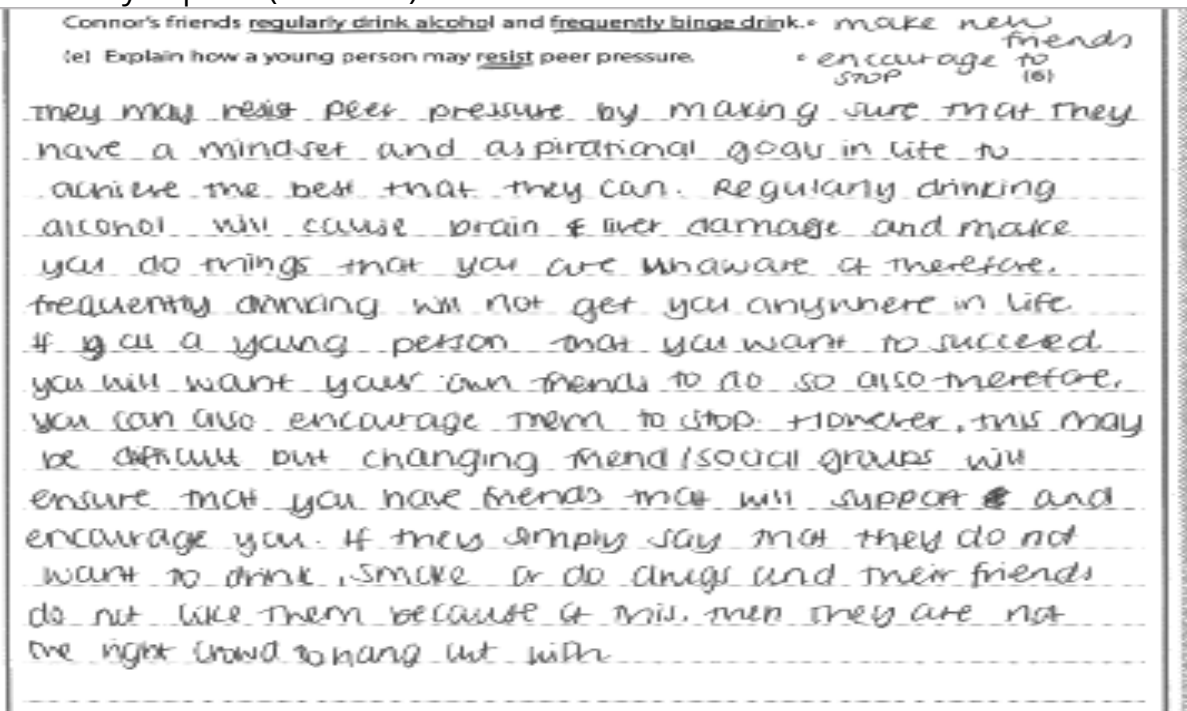 Connor's friends regularly drink alcohol and frequently binge drink. • make new friends
(e) Explain how a young person may resist peer pressure. • encourage to STOP
(6)
They may resist peer pressure by making sure that they
have a mindset and aspirational goals in life to
achieve the best that they can. Regularly drinking
alcohol will cause brain & liver damage and make
you do things that you are unaware of therefore,
frequently drinking will not get you anywhere in life.
If you a young person that you want to succeed
you will want your own friends to do so also therefore,
you can also encourage them to stop. However, this may
be difficult but changing friend/social groups will
ensure that you have friends that will support and
encourage you. If they simply say that they do not
want to drink, smoke or do drugs and their friends
do not like them because of this, then they are not
the right crowd to hang out with